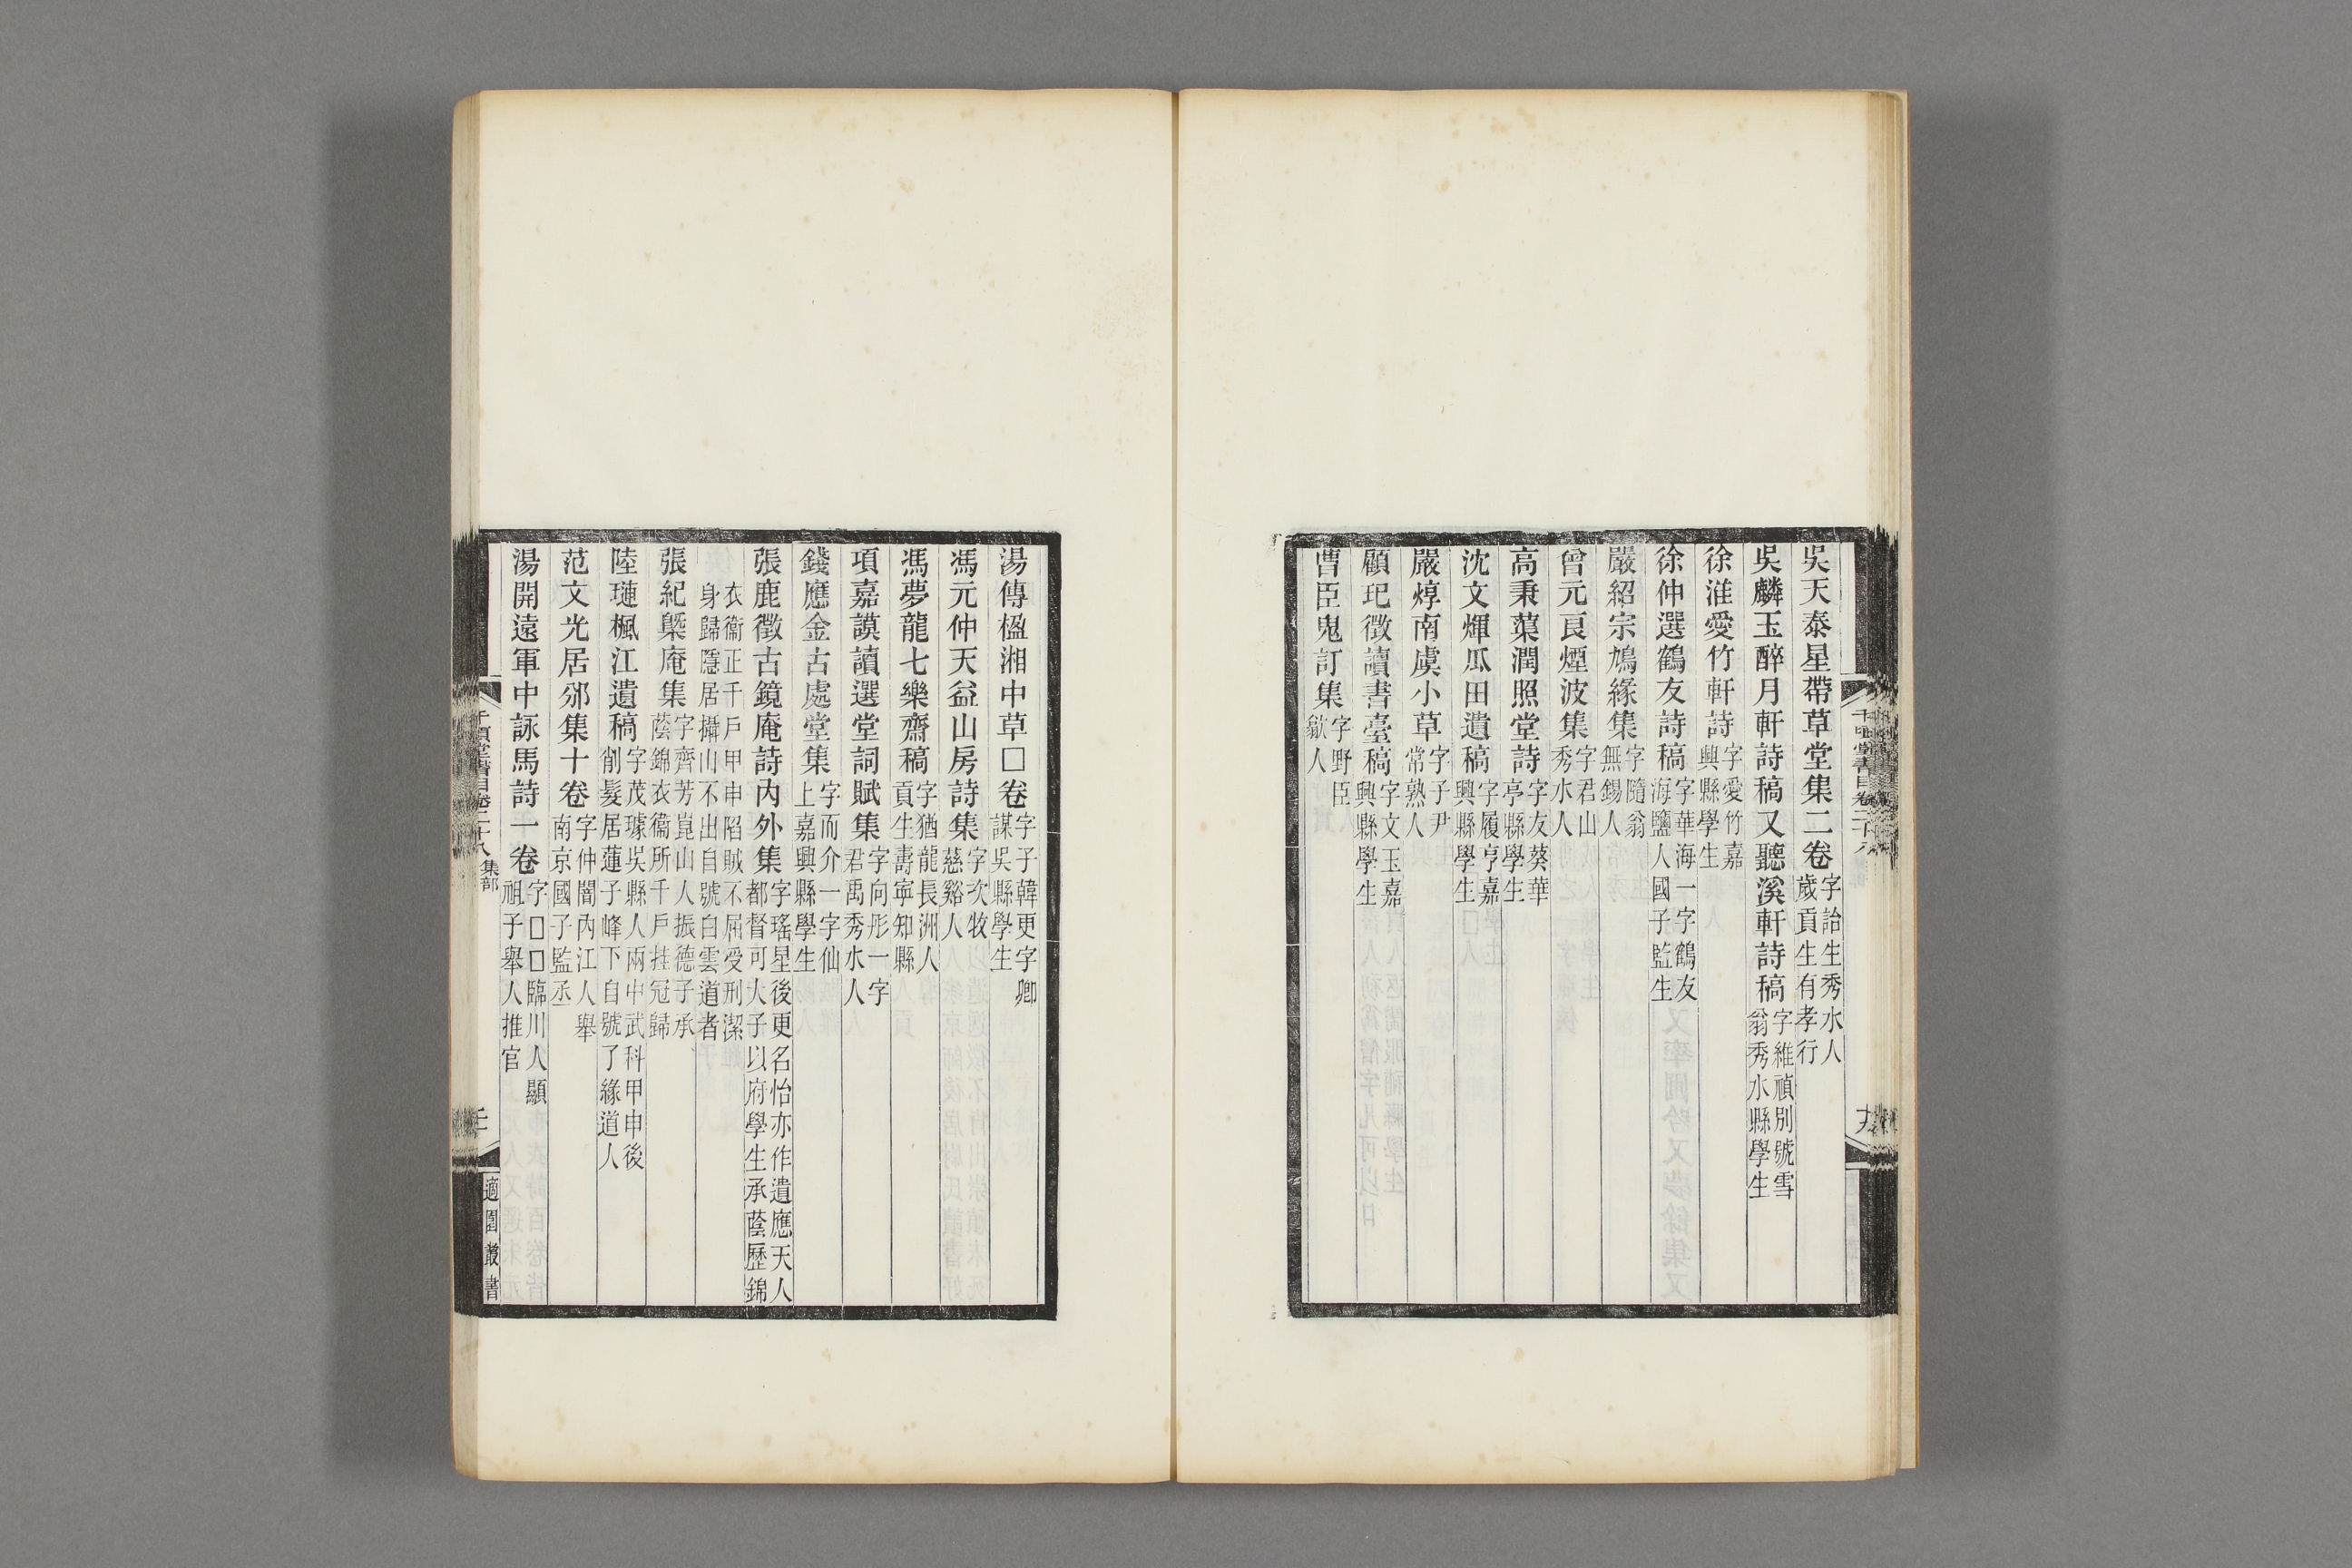 吳天泰星帶草堂集二卷字詒生秀水人歲貢生有孝行
吳麟玉醉月軒詩稿又聽溪軒詩稿字維禎別號雪翁秀水縣學生
徐淮愛竹軒詩字愛竹嘉興縣學生
徐仲選鶴友詩稿字華海一字鶴友海鹽人國子監生
嚴紹宗鳩緣集字隨翁無錫人
曾元良煙波集字君山秀水人
高秉蕖潤照堂詩字友葵華亭縣學生
沈文煇瓜田遺稿字履亨嘉興縣學生
嚴焞南虞小草字子尹常熟人
顧玘徵讀書臺稿字文玉嘉興縣學生
曹臣鬼訂集字野臣歙人
湯傳楹湘中草□卷字子韓更字卿謀吳縣學生
馮元仲天益山房詩集字次牧慈谿人
馮夢龍七樂齋稿字猶龍長洲人貢生壽寧知縣
項嘉謨讀選堂詞賦集字向彤一字君禹秀水人
錢應金古處堂集字而介一字仙上嘉興縣學生
張鹿徵古鏡庵詩內外集字瑤星後更名怡亦作遺應天人都督可大子以府學生承蔭歷錦
衣衞正千戶甲申陷賊不屈受刑潔身歸隱居攝山不出自號白雲道者
張紀㮣庵集字齊芳崑山人振德子承蔭錦衣衞所千戶挂冠歸
陸璉楓江遺稿字茂璩吳縣人兩中武科甲申後削髮居蓮子峰下自號了緣道人
范文光居邠集十卷字仲闇內江人舉南京國子監丞
湯開遠軍中詠馬詩一卷字□□臨川人顯祖子舉人推官
千頃堂書目卷二十八 集部
適園叢書